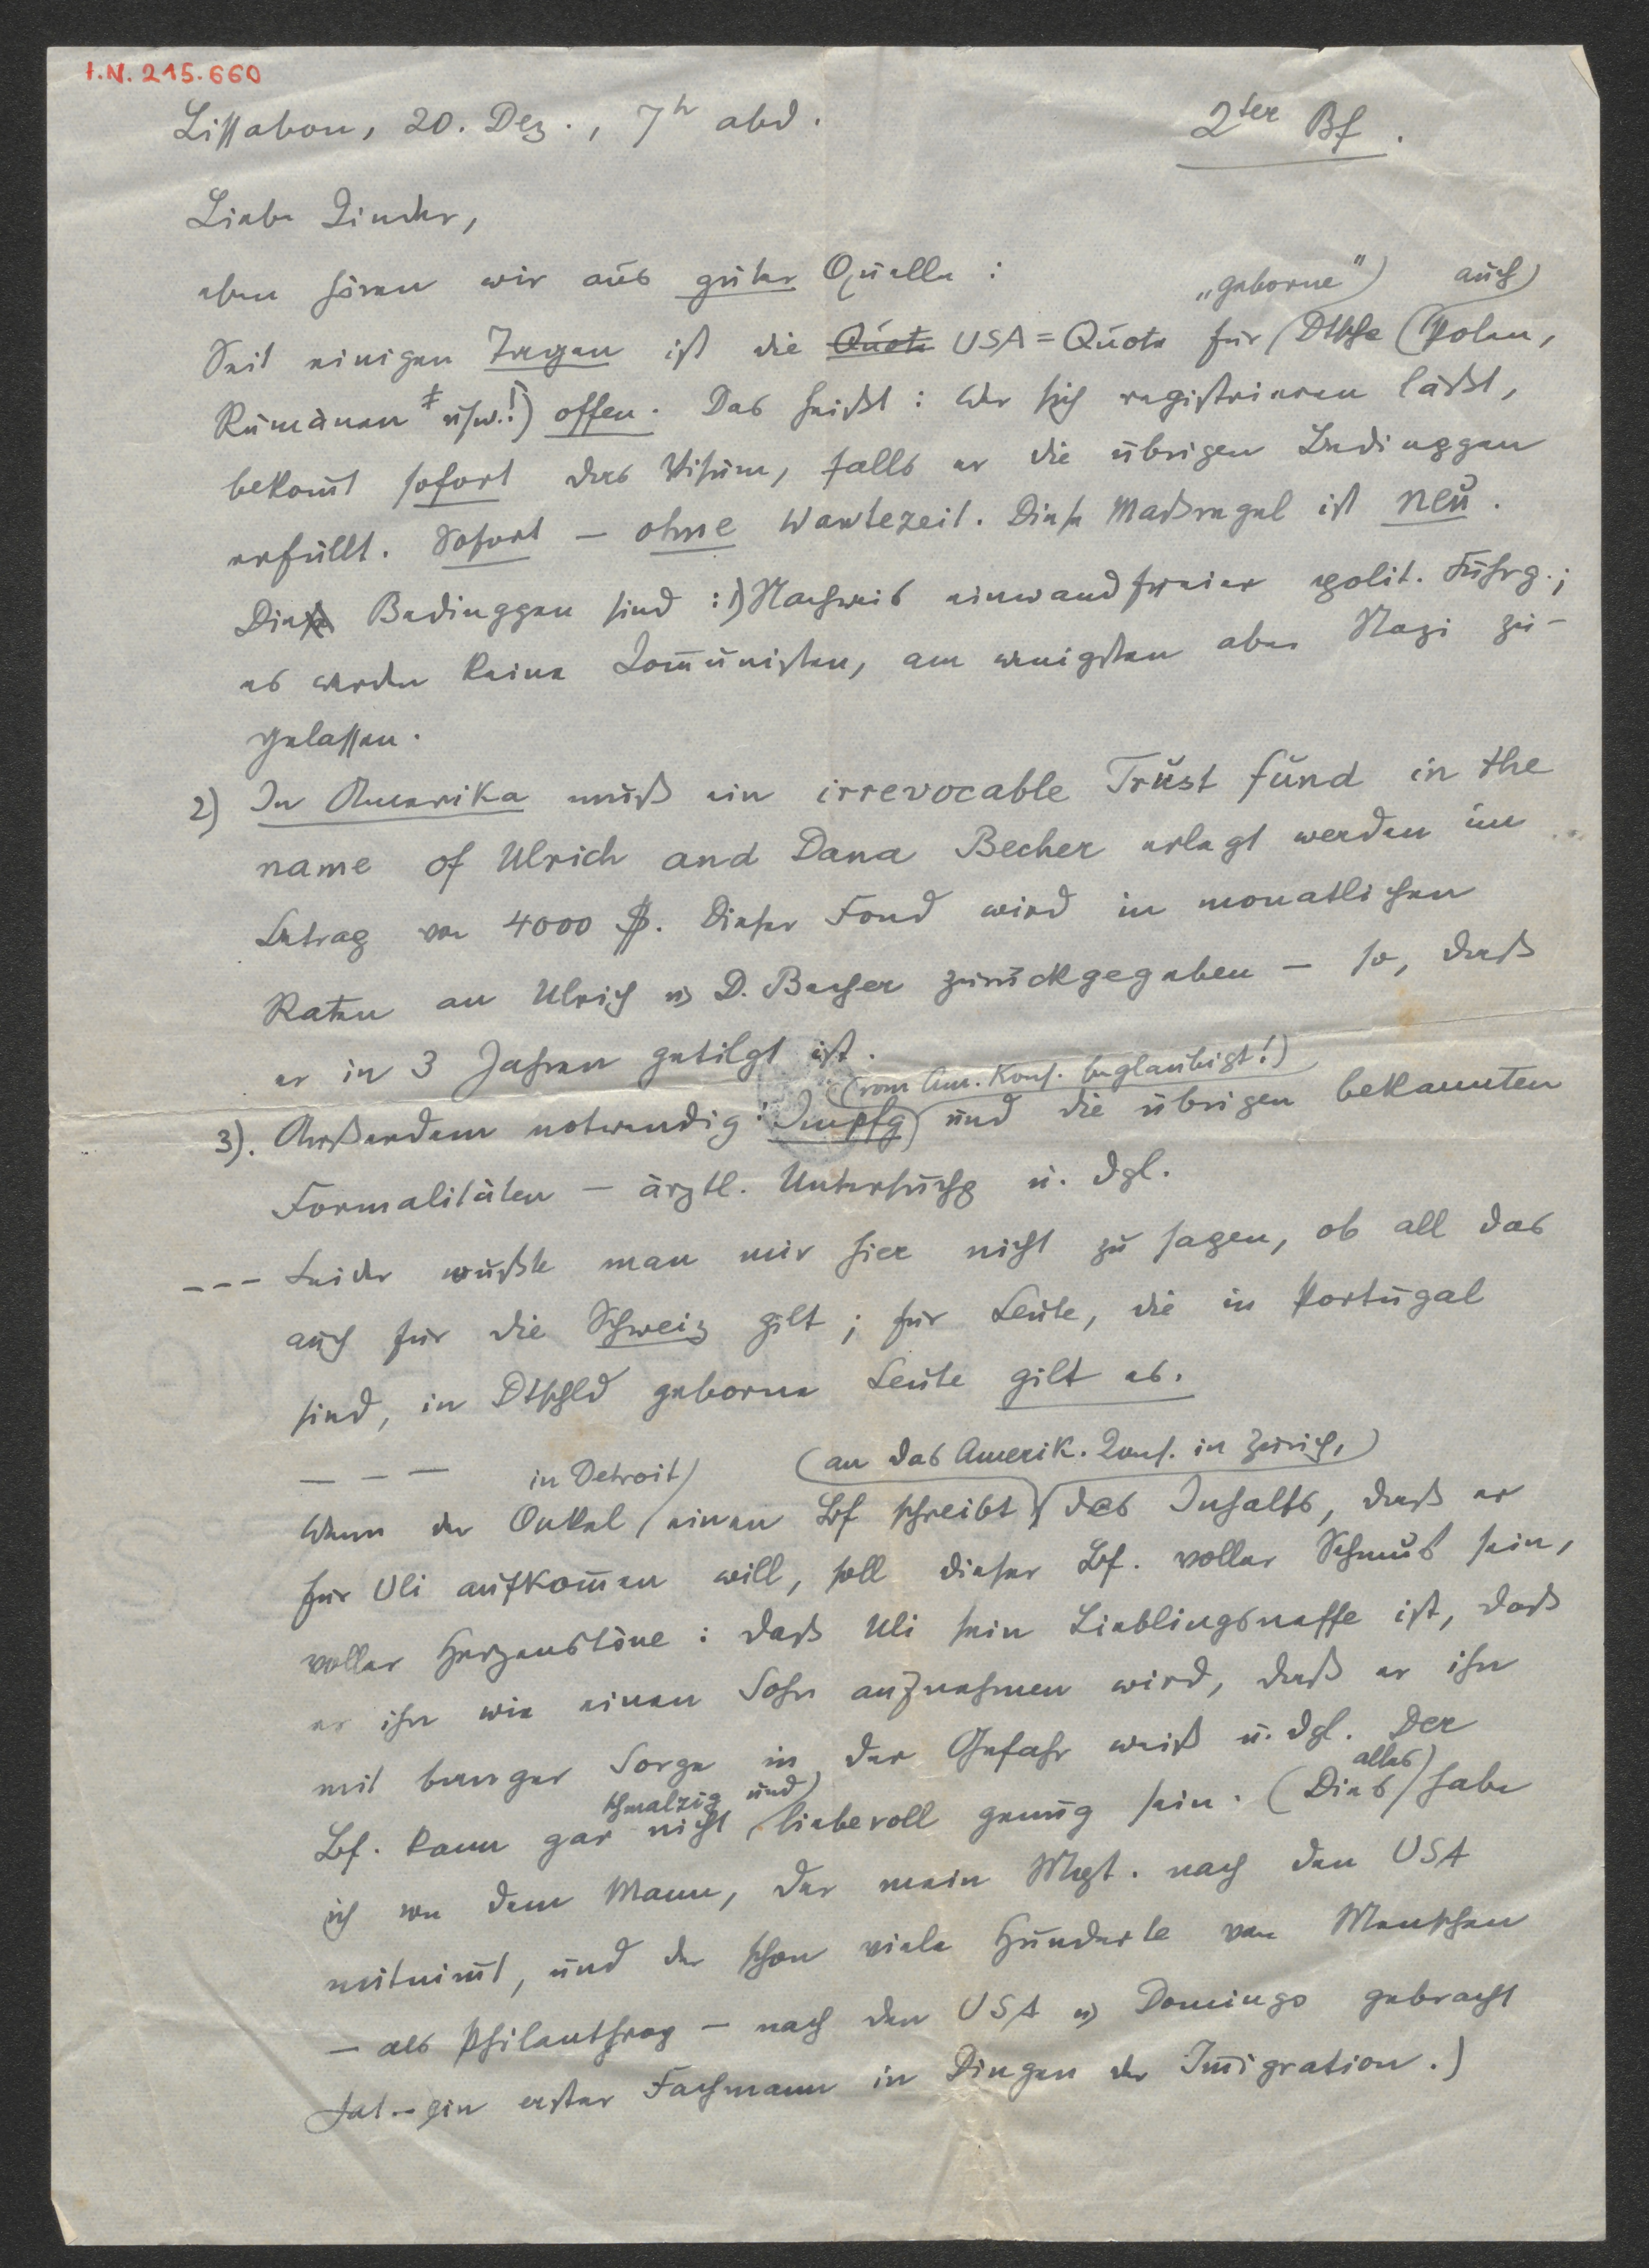 I.N. 215.660
Lissabon, 20. Dez., 7h abd.
2ter Bf.
Liebe Kinder,
eben hören wir aus guter Quelle:
„geborne" auch
Seit einigen Tagen ist die Quote USA=Quote für Dtsche (Polen,
Rumänen usw.!) offen. Das heißt: Wer sich registrieren läßt,
bekommt sofort das Visum, falls er die übrigen Bedinggen
erfüllt. Sofort – ohne Wartezeit. Diese Maßregel ist neu.
Die Bedinggen sind: 1) Nachweis einwandfreier polit. Führg.;
es werden keine Kommunisten, am wenigsten aber Nazi zu-
gelassen.
2) In Amerika muß ein irrevocable Trust fund in the
name of Ulrich and Dana Becher erlegt werden im
Betrag von 4000 $. Dieser Fond wird in monatlichen
Raten an Ulrich u D. Becher zurückgegeben – so, daß
er in 3 Jahren getilgt ist.
(vom Am. Kons. beglaubigt!)
3). Außerdem notwendig: Impfg und die übrigen bekannten
Formalitäten – ärztl. Untersuchg u. dgl.
--- Leider wußte man mir hier nicht zu sagen, ob all das
auch für die Schweiz gilt; für Leute, die in Portugal
sind, in Dtschld geborne Leute gilt es.
– – –
in Detroit (an das Amerik. Kons. in Zürich,)
Wenn der Onkel einen Bf schreibt des Inhalts, daß er
für Uli aufkommen will, soll dieser Bf. voller Schmus sein,
voller Herzenstöne: daß Uli sein Lieblingsneffe ist, daß
er ihn wie einen Sohn aufnehmen wird, daß er ihn
mit banger Sorge in der Gefahr weiß u. dgl. Der
schmalzig und alles
Bf. kann gar nicht liebevoll genug sein. (Dies habe
ich von dem Mann, der mein Mkgt. nach den USA
mitnimmt, und der schon viele Hunderte von Menschen
– als Philanthrop – nach den USA u Domingo gebracht
hat – ein erster Fachmann in Dingen der Immigration.)